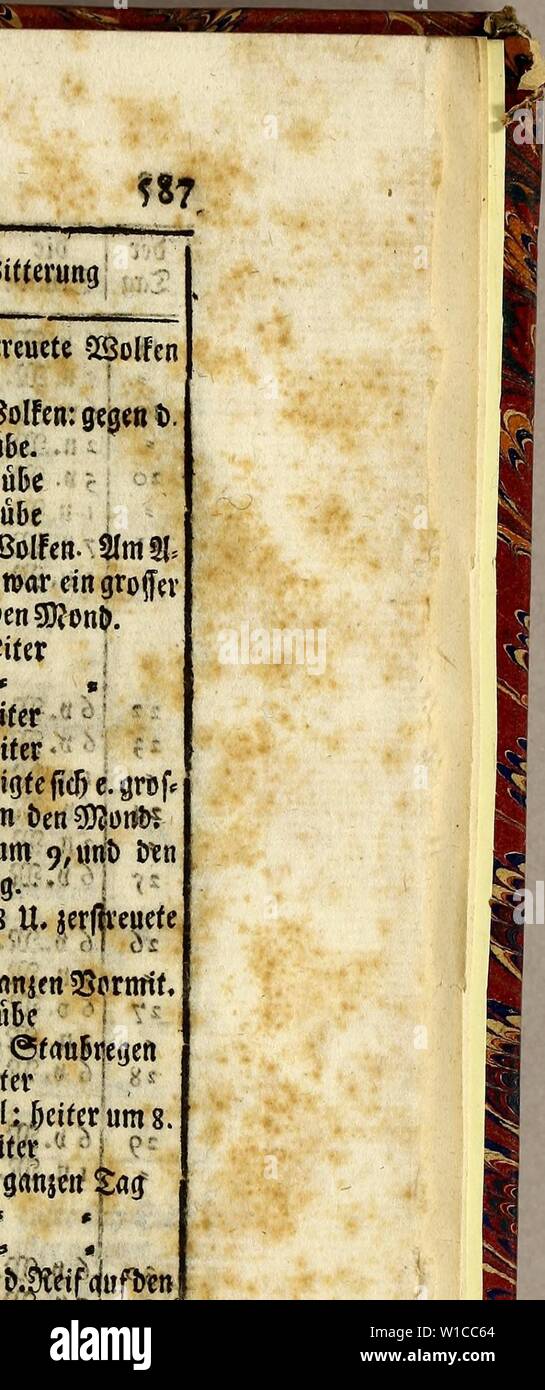 587
itterung
reuete Wolken
olken: gegen d.
übe.
übe
übe
Wolken. Am A=
war ein grosser
en Mond.
eiter
iter
iter
igte sich e. gros=
n den Mond:
um 9, und den
g.
8 U. zerstreuete
anzen Vormit.
übe
Staubregen
ter
l: heiter um 8.
iter
ganzen Tag
d. Reif auf den
alamy
W1CC64
www.alamy.com